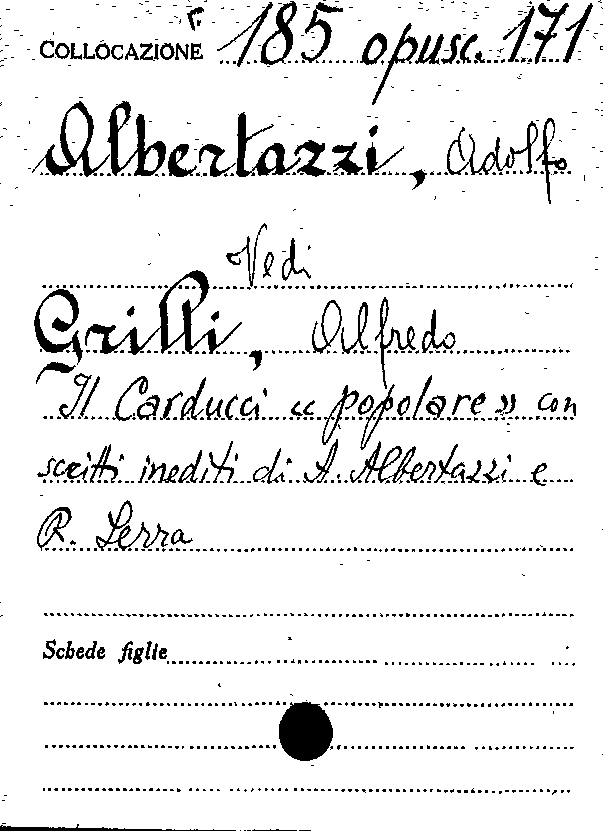 COLLOCAZIONE F. 185 opusc. 171
Albertazzi, Adolfo
Vedi
Grilli, Alfredo
Il Carducci « popolare » con
scritti inediti di A. Albertazzi e
R. Serra
Schede figlie